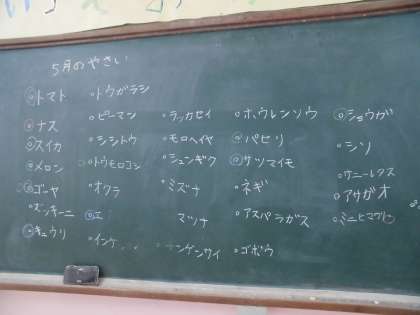 5月のやさい
◎トマト
◎ナス
◎スイカ
◎メロン
◎ゴーヤ
ズッキーニ
◎キュウリ
○トウガラシ
○ピーマン
○シシトウ
○トウモロコシ
○オクラ
○インゲ
○ラッカセイ
○モロヘイヤ
○シュンギク
○ミズナ
マツナ
ンゲンサイ
○ホウレンソウ
◎パセリ
◎サツマイモ
○ネギ
○アスパラガス
○ゴボウ
◎ショウガ
○シソ
○サニーレタス
○アサガオ
○ミニヒマワリ